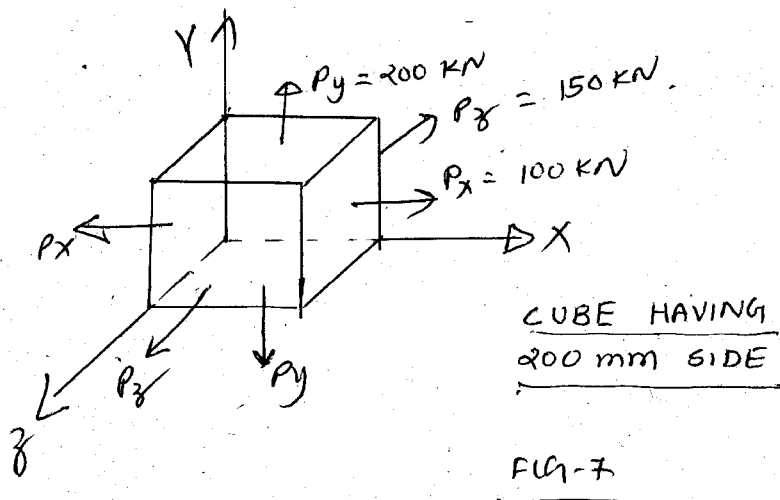 Y
Py = 200 KN
Pz = 150 KN.
Px = 100 KN
Px
X
CUBE HAVING
200 mm SIDE
Pz
Py
z
FIG-7